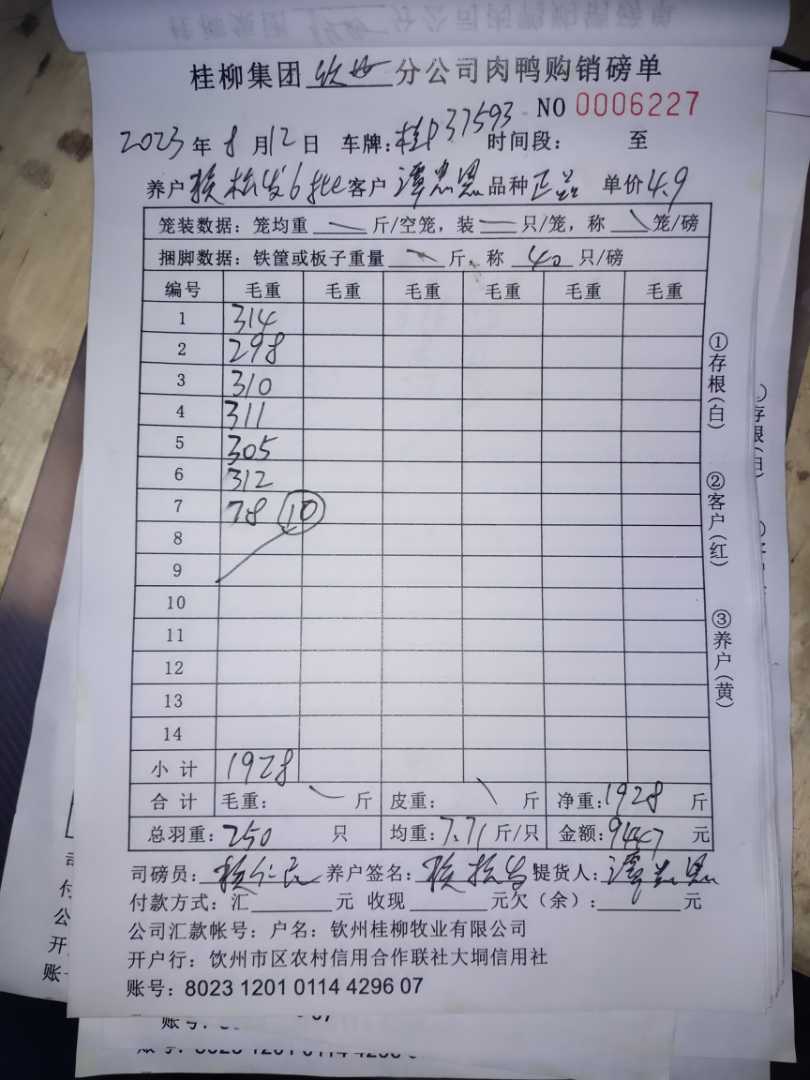 桂柳集团 钦州 分公司肉鸭购销磅单
NO 0006227
2023年8月12日 车牌:桂P37593 时间段: 至
养户 赖松发6批 客户 谭忠恩 品种 正品 单价4.9
笼装数据: 笼均重 斤/空笼, 装 只/笼, 称 笼/磅
捆脚数据: 铁筐或板子重量 斤, 称 40 只/磅
编号 毛重 毛重 毛重 毛重 毛重 毛重
1 314
2 298
3 310
4 311
5 305
6 312
7 78 10
8
9
10
11
12
13
14
小计 1928
合计 毛重: 斤 皮重: 斤 净重:1928 斤
总羽重:250 只 均重:7.71斤/只 金额:9447 元
①存根(白)
②客户(红)
③养户(黄)
司磅员: 养户签名: 赖松发 提货人: 谭忠恩
付款方式: 汇 元 收现 元欠(余): 元
公司汇款帐号: 户名: 钦州桂柳牧业有限公司
开户行: 钦州市区农村信用合作联社大垌信用社
账号: 8023 1201 0114 4296 07